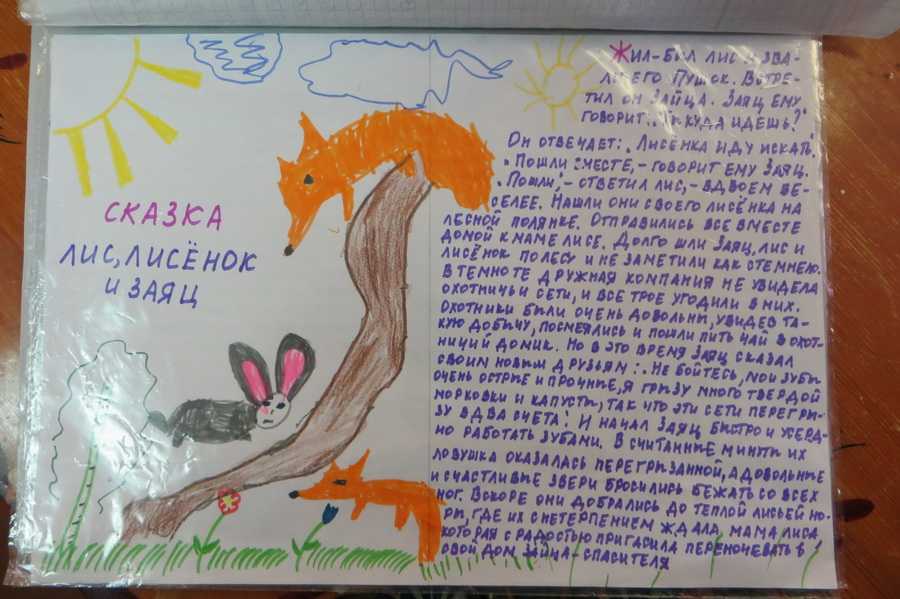 СКАЗКА
ЛИС, ЛИСЁНОК
И ЗАЯЦ
ЖИЛ-БЫЛ ЛИС И ЗВА-
ЛИ ЕГО ПУШОК. ВСТРЕ-
ТИЛ ОН ЗАЙЦА. ЗАЯЦ ЕМУ
ГОВОРИТ: "ТЫ КУДА ИДЕШЬ?"
ОН ОТВЕЧАЕТ: "ЛИСЕНКА ИДУ ИСКАТЬ".
"ПОШЛИ ВМЕСТЕ, - ГОВОРИТ ЕМУ ЗАЯЦ.
"ПОШЛИ", - ОТВЕТИЛ ЛИС, - ВДВОЕМ ВЕ-
СЕЛЕЕ. НАШЛИ ОНИ СВОЕГО ЛИСЁНКА НА
ЛЕСНОЙ ПОЛЯНКЕ. ОТПРАВИЛИСЬ ВСЕ ВМЕСТЕ
ДОМОЙ К МАМЕ ЛИСЕ. ДОЛГО ШЛИ ЗАЯЦ, ЛИС И
ЛИСЁНОК ПО ЛЕСУ И НЕ ЗАМЕТИЛИ КАК СТЕМНЕЛО.
В ТЕМНОТЕ ДРУЖНАЯ КОМПАНИЯ НЕ УВИДЕЛА
ОХОТНИЧЬИ СЕТИ, И ВСЕ ТРОЕ УГОДИЛИ В НИХ.
ОХОТНИКИ БЫЛИ ОЧЕНЬ ДОВОЛЬНЫ, УВИДЕВ ТА-
КУЮ ДОБЫЧУ, ПОСМЕЯЛИСЬ И ПОШЛИ ПИТЬ ЧАЙ В ОХОТ-
НИЧИЙ ДОМИК. НО В ЭТО ВРЕМЯ ЗАЯЦ СКАЗАЛ
СВОИМ НОВЫМ ДРУЗЬЯМ: "НЕ БОЙТЕСЬ, МОИ ЗУБЫ
ОЧЕНЬ ОСТРЫЕ И ПРОЧНЫЕ, Я ГРЫЗУ МНОГО ТВЕРДОЙ
МОРКОВКИ И КАПУСТЫ, ТАК ЧТО ЭТИ СЕТИ ПЕРЕГРЫ-
ЗУ В ДВА СЧЕТА". И НАЧАЛ ЗАЯЦ БЫСТРО И УСЕРД-
НО РАБОТАТЬ ЗУБАМИ. В СЧИТАННЫЕ МИНУТЫ ИХ
ЛОВУШКА ОКАЗАЛАСЬ ПЕРЕГРЫЗАННОЙ, А ДОВОЛЬНЫЕ
И СЧАСТЛИВЫЕ ЗВЕРИ БРОСИЛИСЬ БЕЖАТЬ СО ВСЕХ
НОГ. ВСКОРЕ ОНИ ДОБРАЛИСЬ ДО ТЕПЛОЙ ЛИСЬЕЙ НО-
РЫ, ГДЕ ИХ С НЕТЕРПЕНИЕМ ЖДАЛА, МАМА ЛИСА,
КОТОРАЯ С РАДОСТЬЮ ПРИГЛАСИЛА ПЕРЕНОЧЕВАТЬ В
СВОЙ ДОМ ЗАЙЦА-СПАСИТЕЛЯ